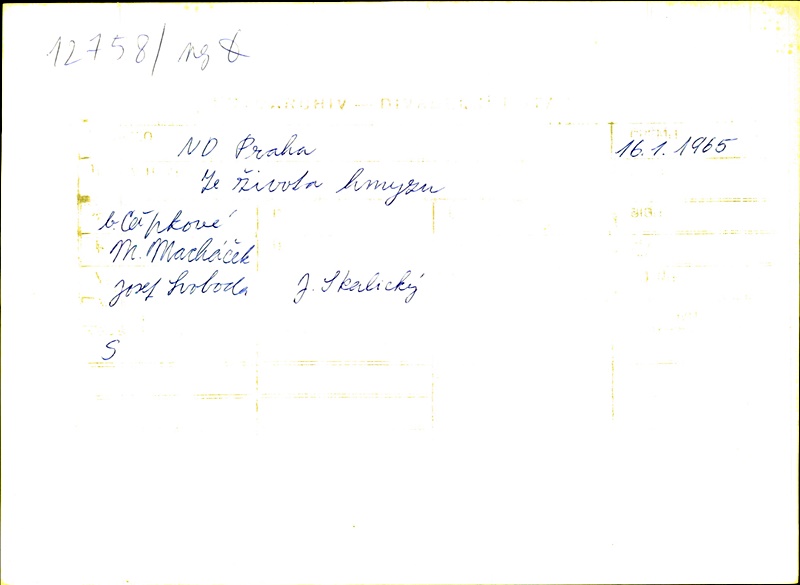 12758/ neg
ND Praha 16.1.1965
Ze života hmyzu
b. Čapkové
M. Macháček
Josef Svoboda J. Skalický
S